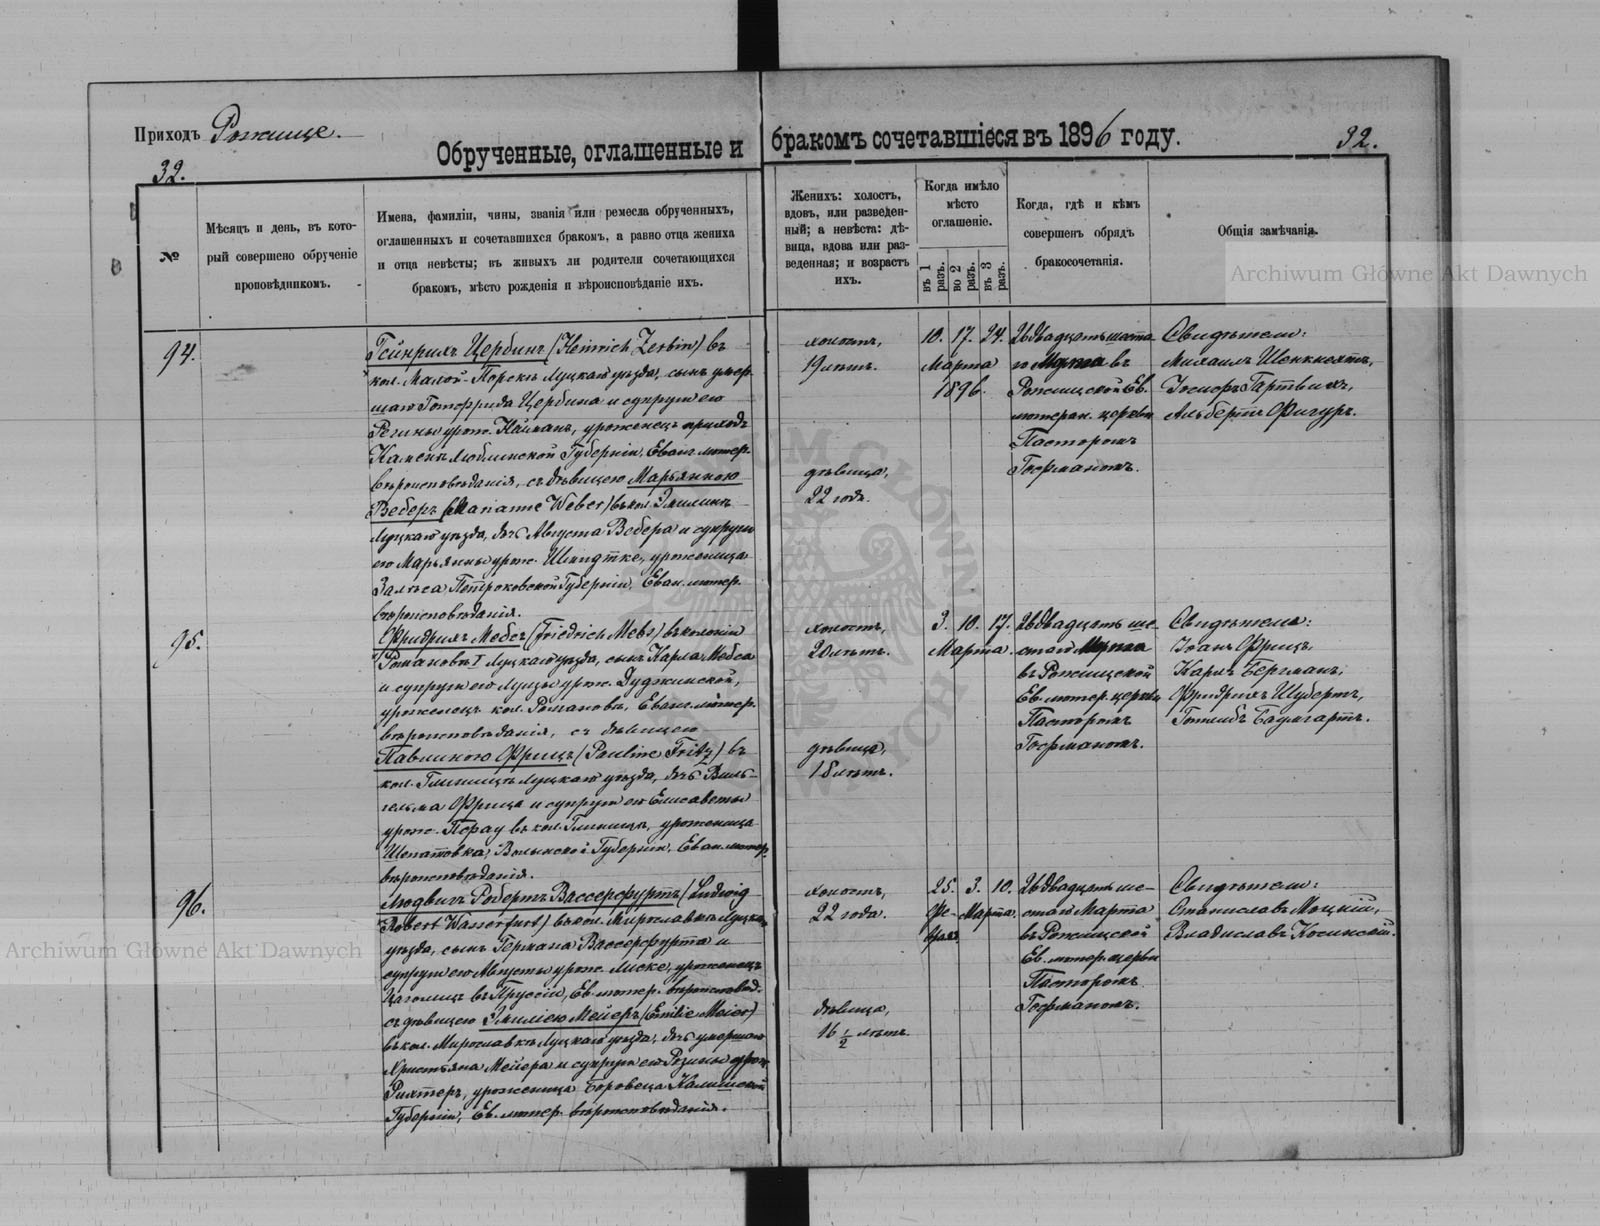 Приходъ Рожище.
Обрученные, оглашенные и бракомъ сочетавшіеся въ 1896 году.
32.
32.
№
Мѣсяцъ и день, въ кото-
рый совершено обрученіе
проповѣдникомъ.
Имена, фамиліи, чины, званія или ремесла обрученныхъ,
оглашенныхъ и сочетавшихся бракомъ, а равно отца жениха
и отца невѣсты; въ живыхъ ли родители сочетающихся
бракомъ, мѣсто рожденія и вѣроисповѣданіе ихъ.
Женихъ: холостъ,
вдовъ, или разведен-
ный; а невѣста: дѣ-
вица, вдова или раз-
веденная; и возрастъ
ихъ.
Когда имѣло
мѣсто
оглашеніе.
въ 1 разъ.
во 2 разъ.
въ 3 разъ.
Когда, гдѣ и кѣмъ
совершенъ обрядъ
бракосочетанія.
Общія замѣчанія.
94.
Гейнрихъ Цербинъ (Heinrich Zerbin) въ
кол. Малой Порскъ Луцкаго уѣзда, сынъ умер-
шаго Готфрида Цербина и супруги его
Регины урож. Найманъ, уроженецъ приходъ
Каменъ Люблинской Губерніи, Еванг. лютер.
вѣроисповѣданія, съ дѣвицею Марьянною
Веберъ (Marianne Weber) въ кол. Эмилинъ
Луцкаго уѣзда, дочь Августа Вебера и супруги
его Марьянны урож. Шмидтке, уроженица
Петроковской Губерніи, Еван. лютер.
вѣроисповѣданія.
холостъ,
19 лѣтъ.
дѣвица,
22 года.
10. 17. 24.
Марта
1896.
Двадцать шеста
го Марта въ
Рожищской Ев.
лютеран. церкви
Пасторомъ
Гофманомъ.
Свидѣтели:
Михаилъ Шенкнехтъ,
Іосифъ Гартвихъ,
Альбертъ Фигуръ.
95.
Фридрихъ Мебсъ (Friedrich Mebs) въ колоніи
Романовъ I Луцкаго уѣзда, сынъ Карла Мебса
и супруги его Луизы урож. Дуджинской,
уроженецъ кол. Романовъ, Еванг. лютер.
вѣроисповѣданія, съ дѣвицею
Павлиною Фрицъ (Pauline Fritz) въ
кол. Глинищъ Луцкаго уѣзда, дочь Виль-
гельма Фрица и супруги его Елисаветы
урож. Порау въ кол. Глинищъ, уроженица
Шепатовка, Волынской Губерніи, Еван. лютер.
вѣроисповѣданія.
холостъ,
20 лѣтъ.
дѣвица,
18 лѣтъ.
3. 10. 17.
Марта.
Двадцать ше-
стаго Марта
въ Рожищской
Ев. лютер. церкви
Пасторомъ
Гофманомъ.
Свидѣтели:
Іоанъ Фрицъ,
Карлъ Бергманъ,
Фридрихъ Шубертъ,
Готлибъ Баумгартъ.
96.
Людвигъ Робертъ Вассерфуртъ (Ludwig
Robert Wasserfurt) въ кол. Мирославкъ Луцкаго
уѣзда, сынъ Германа Вассерфурта и
супруги его Августы урож. Лиске, уроженецъ
въ Пруссіи, Ев. лютер. вѣроисповѣд.
съ дѣвицею Эмиліею Мейеръ (Emilie Meier)
въ кол. Мирославкъ Луцкаго уѣзда, дочь умершаго
Христьяна Мейера и супруги его Розины урож.
Рихтеръ, уроженица Боровеца Калишской
Губерніи, Ев. лютер. вѣроисповѣданія.
холостъ,
22 года.
дѣвица,
16 1/2 лѣтъ.
25. 3. 10.
Фе- Марта.
враля
Двадцать ше-
стаго Марта
въ Рожищской
Ев. лютер. церкви
Пасторомъ
Гофманомъ.
Свидѣтели:
Станиславъ Моцкій,
Владиславъ Косинскій.
Archiwum Główne Akt Dawnych
Archiwum Główne Akt Dawnych